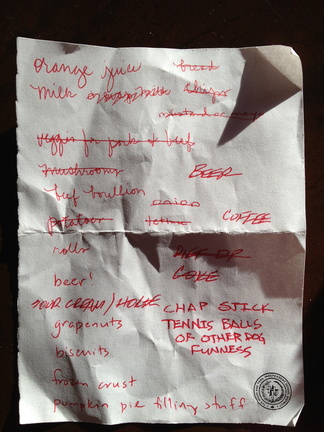 orange juice bread
milk chips
mustard or mayo
veggies for pork & beef
mushrooms BEER
beef boullion
potatoes lettuce COFFEE
rolls DIET DR
beer COKE
SOUR CREAM / HORSE CHAP STICK
grapenuts TENNIS BALLS
OR OTHER DOG
biscuits FUNNESS
frozen crust
pumpkin pie filling stuff